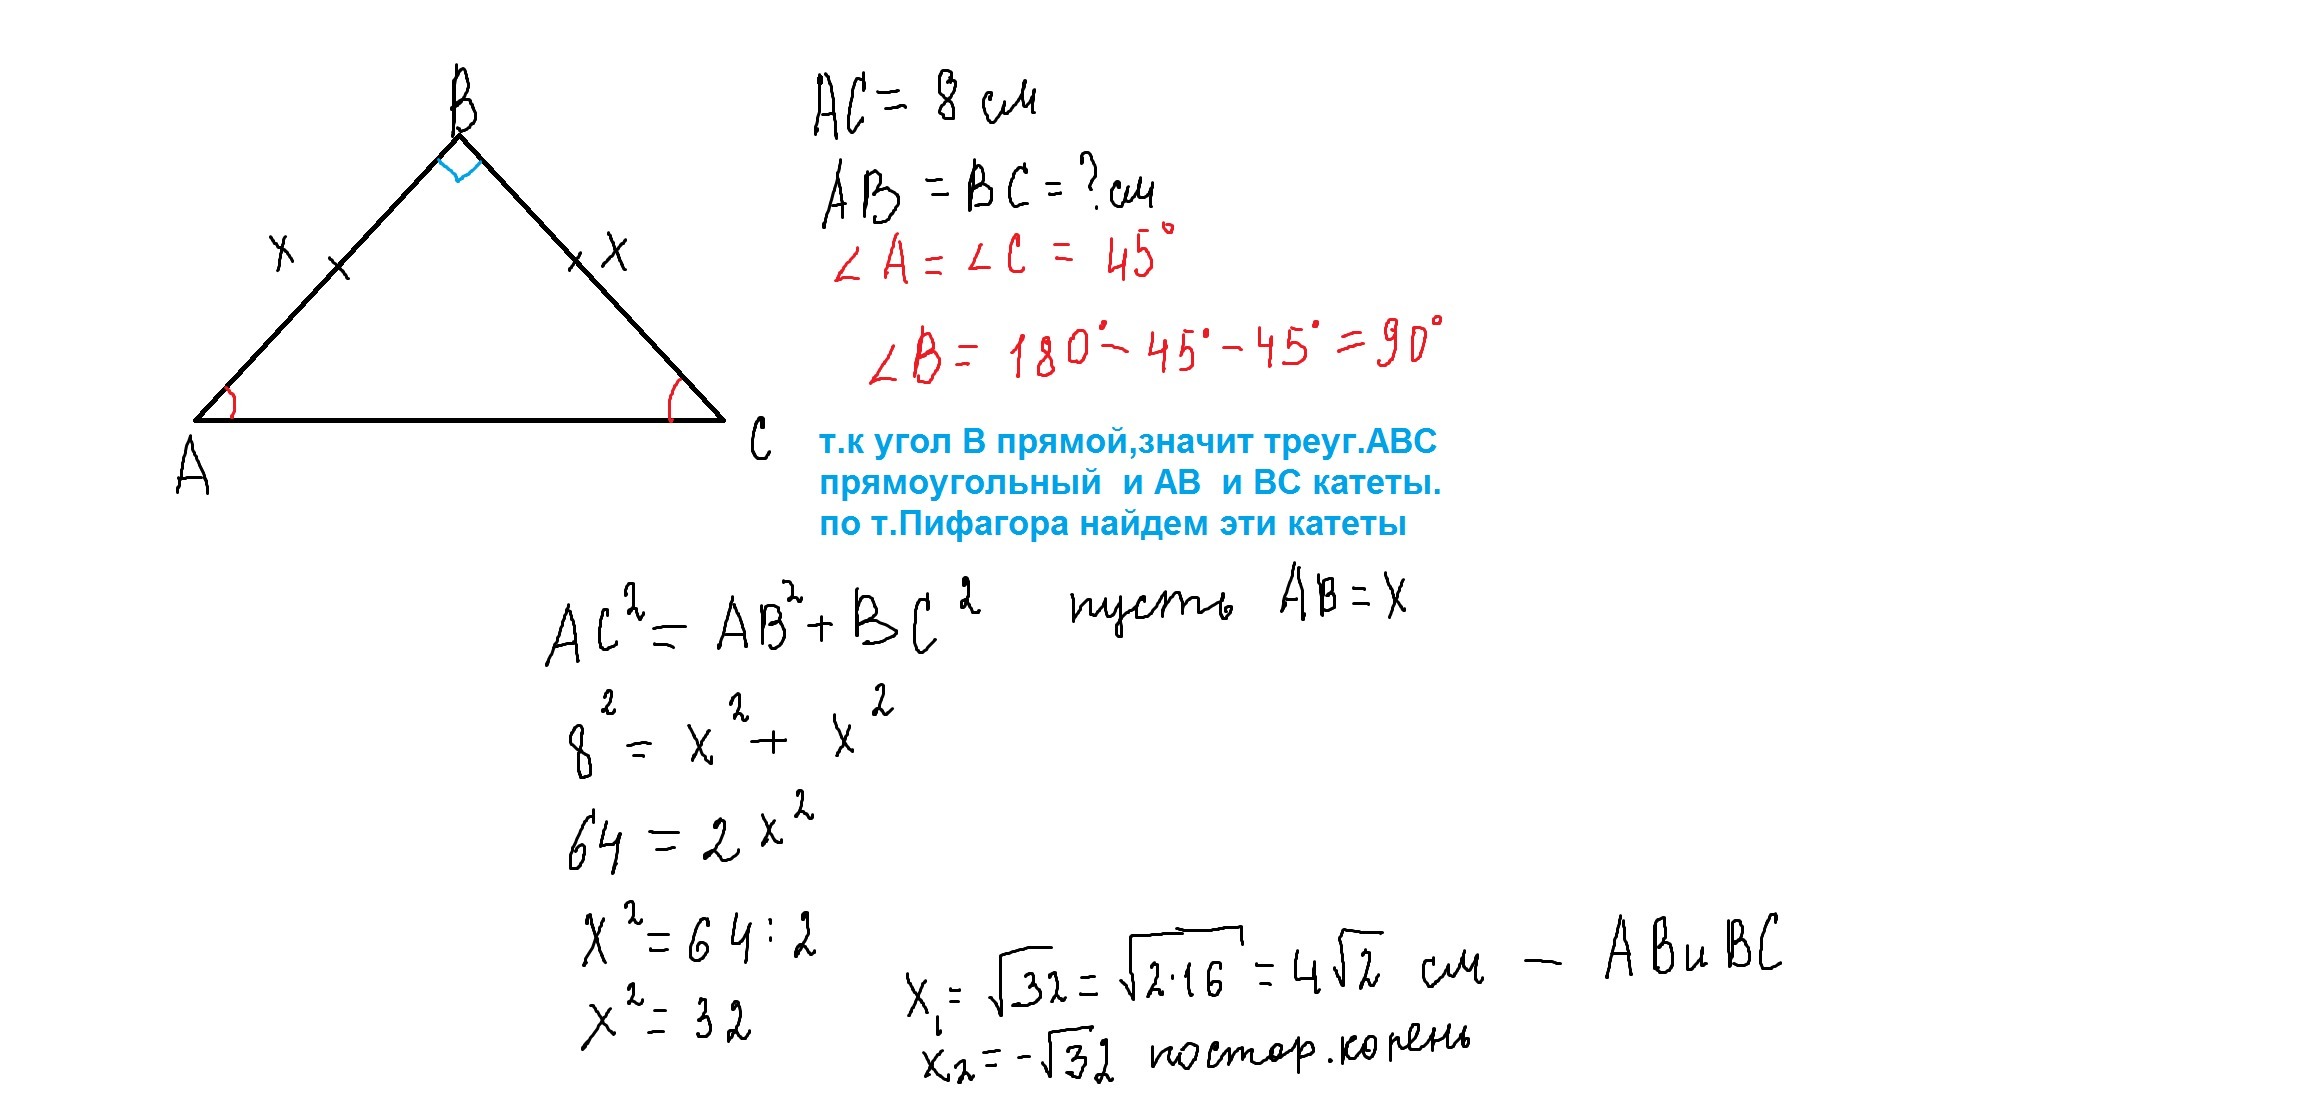 B
AC = 8 см
AB = BC = ? см
x x
∠A = ∠C = 45°
∠B = 180° - 45° - 45° = 90°
A C
т.к угол В прямой,значит треуг.АВС
прямоугольный и АВ и ВС катеты.
по т.Пифагора найдем эти катеты
AC² = AB² + BC² пусть AB = x
8² = x² + x²
64 = 2x²
x² = 64 : 2
x² = 32
x₁ = √32 = √2·16 = 4√2 см — AB и BC
x₂ = -√32 постор. корень